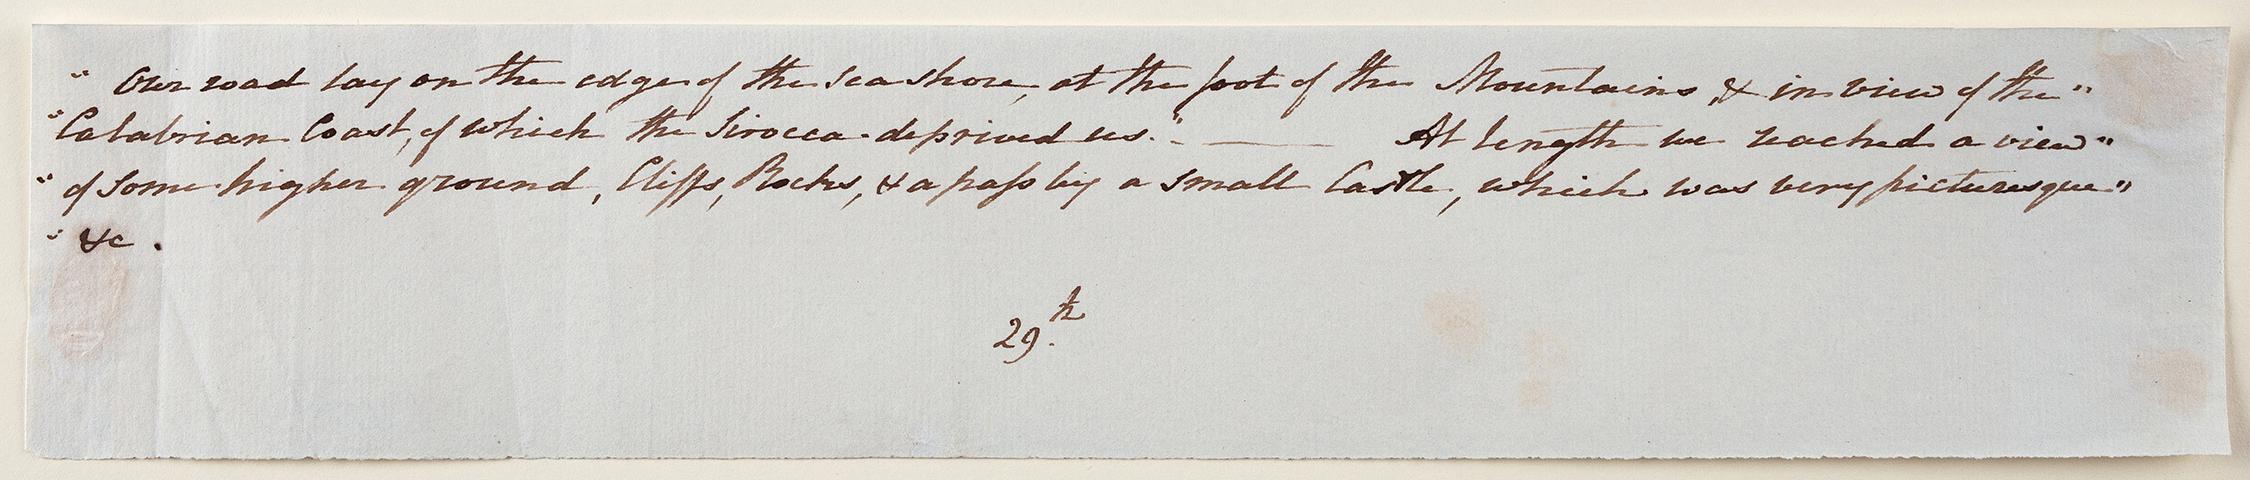 " Our road lay on the edge of the sea shore, at the foot of the Mountains, & in view of the "
" Calabrian Coast, of which the Sirocca deprived us." ——— At length we reached a view "
" of some higher ground, Cliffs, Rocks, & a paſs by a small Castle, which was very picturesque "
" &c.
29.th